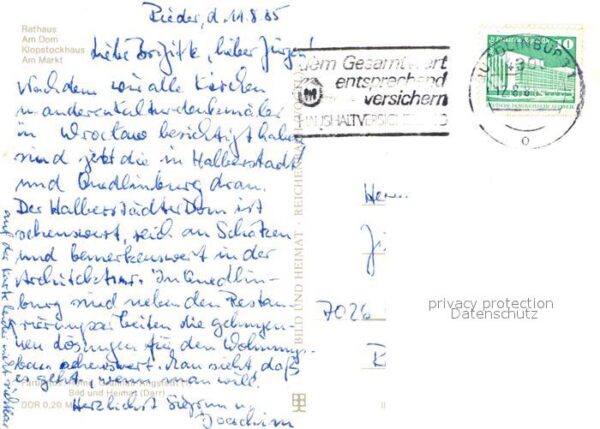 Rieder, d. 11.8.85
Rathaus
Am Dom
Klopstockhaus
Am Markt
Liebe Brigitte, lieber Jürgen!
Nachdem wir alle Kirchen
u. anderen Kulturdenkmäler
in Wroclaw besichtigt haben
sind jetzt die in Halberstadt
und Quedlinburg dran.
Der Halberstädter Dom ist
sehenswert, reich an Schätzen
und bemerkenswert in der
Architektur. In Quedlin-
burg sind neben den Restau-
rierungsarbeiten die gelunge-
nen Lösungen für den Wohnungs-
bau sehenswert. Man sieht, daß
es geht, wenn man will.
Herzlichst Sigrun u.
Joachim
auf der Karte leider nicht sichtbar
Bild und Heimat (Darr)
DDR 0,20 M
BILD UND HEIMAT · REICHENBACH
dem Gesamtwert
entsprechend
versichern
HAUSHALTVERSICHERUNG
QUEDLINBURG 1
430
12.8.8
10
Herrn
7026
privacy protection
Datenschutz